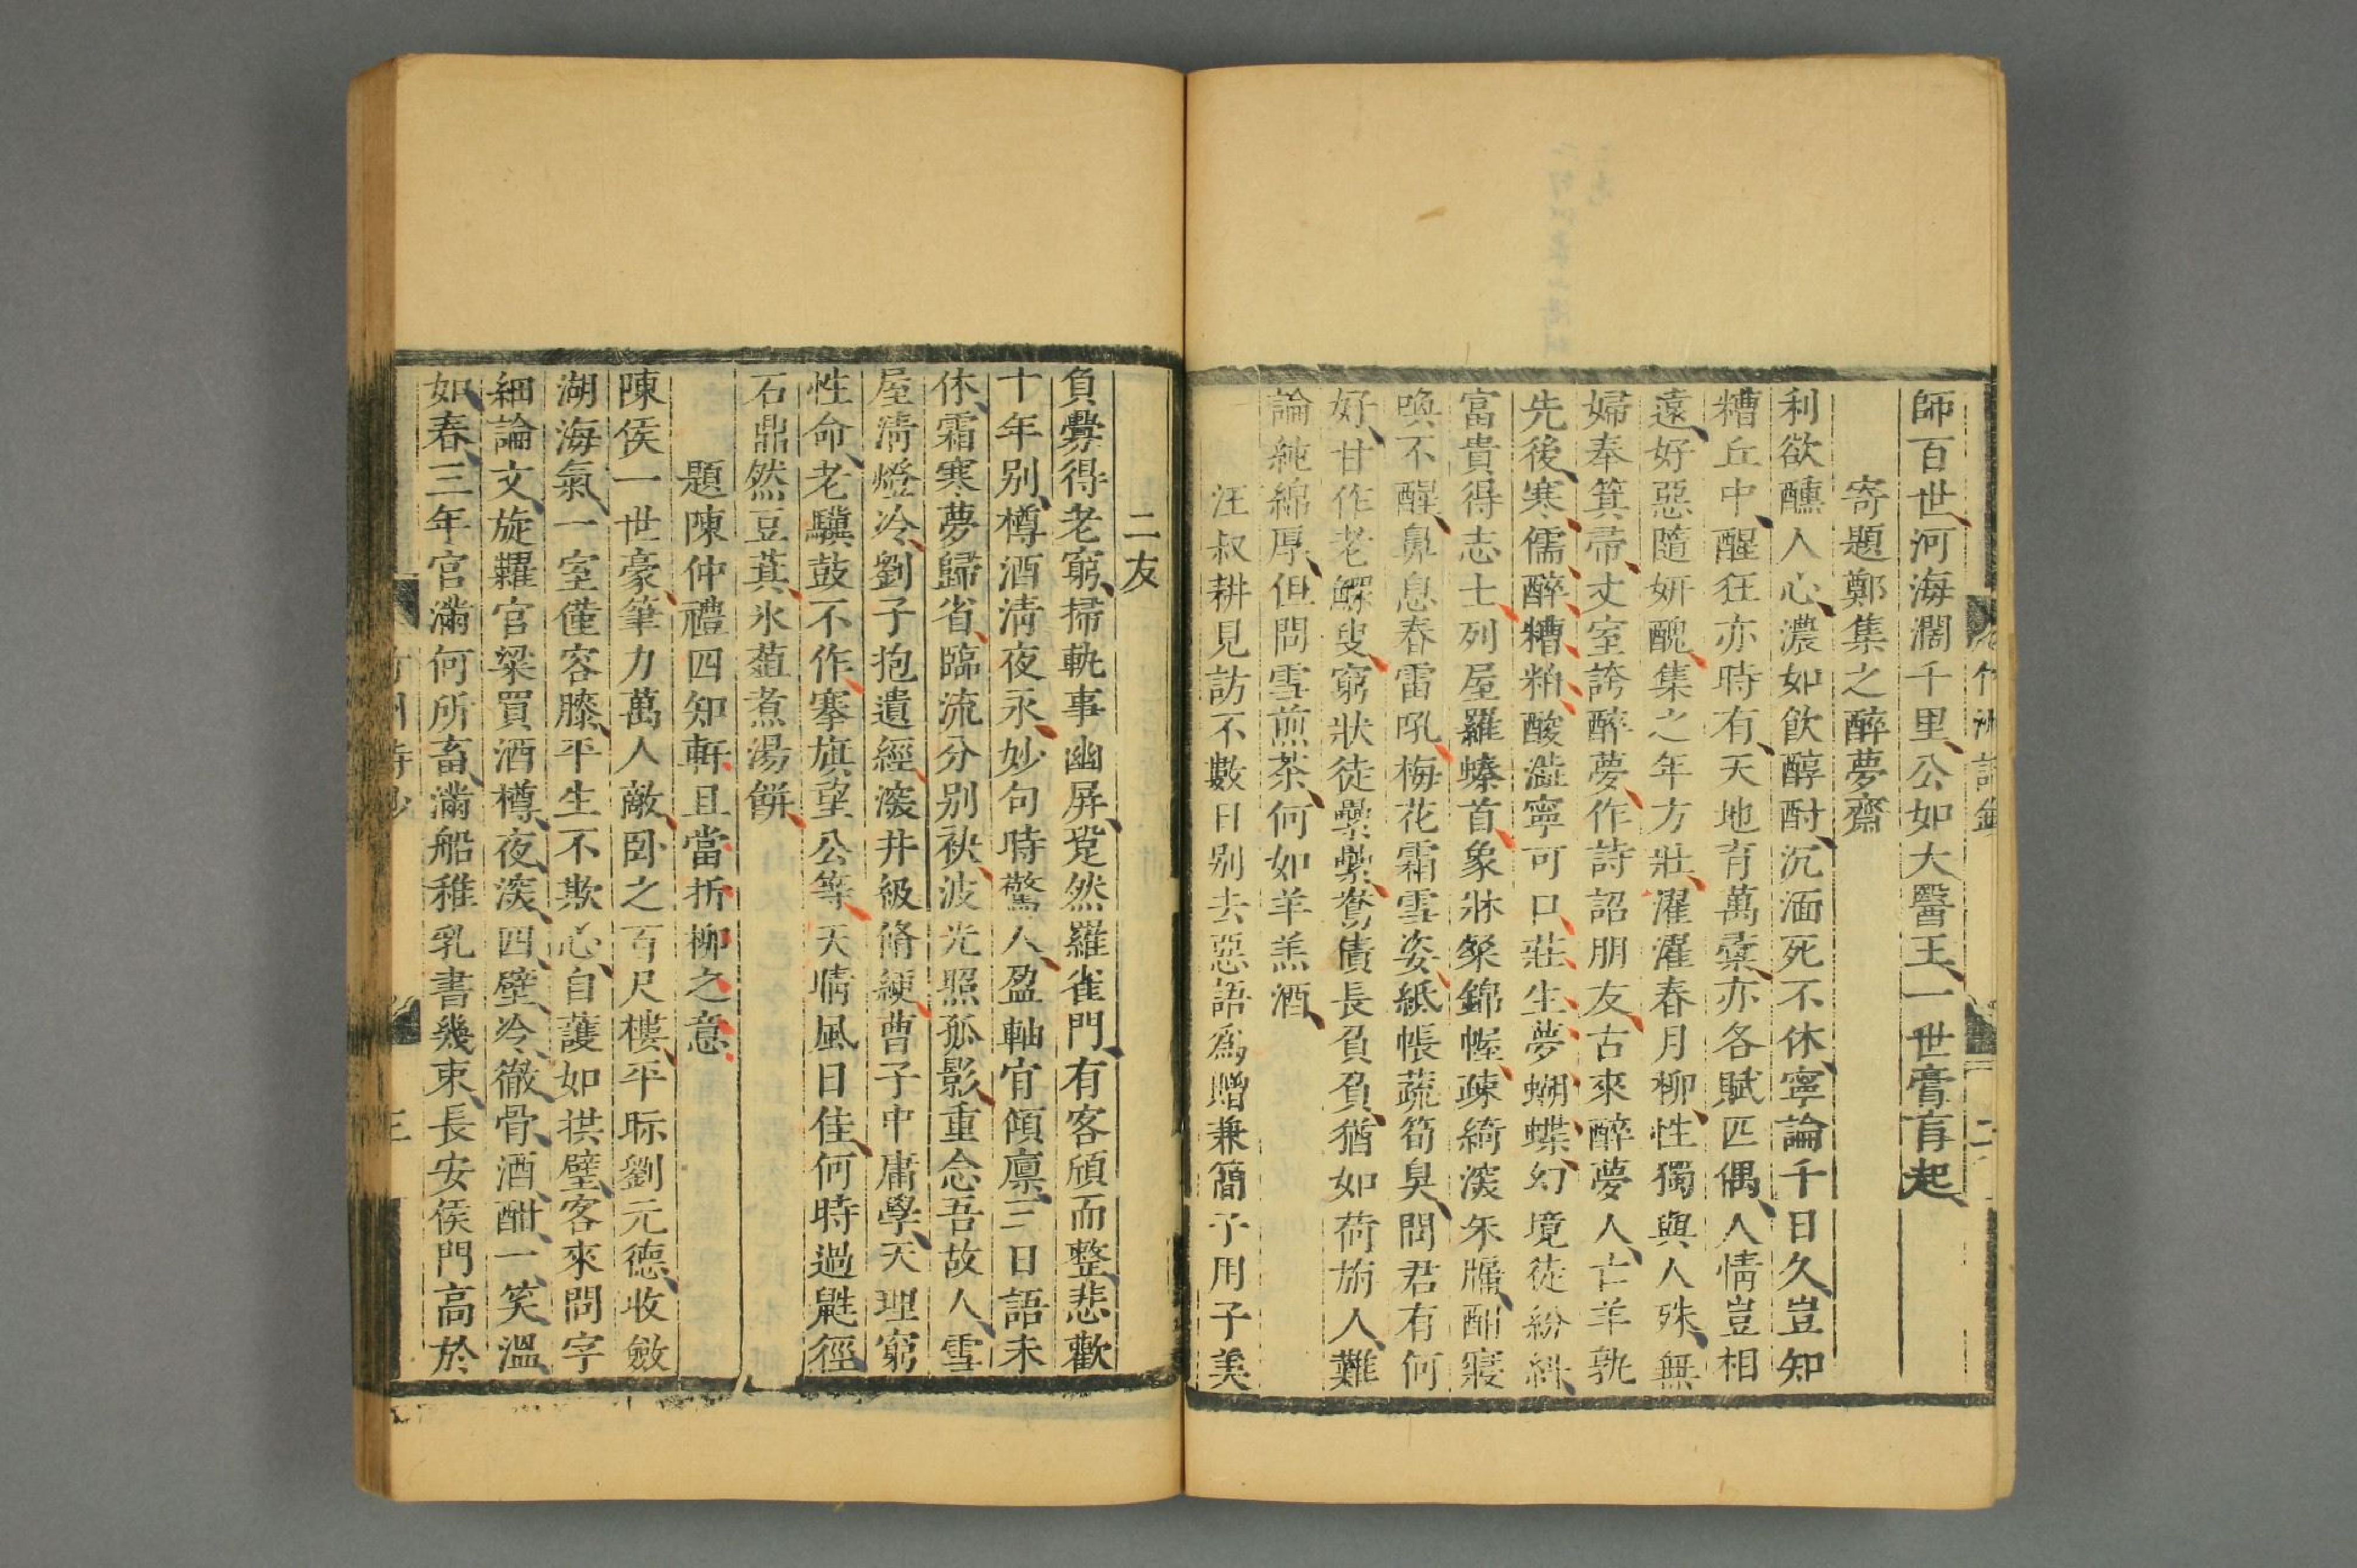 師百世河海濶千里公如大醫王一世膏肓起
寄題鄭集之醉夢齋
利欲醺人心濃如飲醇酎沉湎死不休寧論千日久豈知
糟丘中醒狂亦時有天地育萬彙亦各賦匹偶人情豈相
遠好惡隨妍醜集之年方壯濯濯春月柳性獨與人殊無
婦奉箕帚丈室誇醉夢作詩詔朋友古來醉夢人亡羊孰
先後寒儒醉糟粕酸澁寧可口莊生夢蝴蝶幻境徒紛糾
富貴得志士列屋羅螓首象牀粲錦幄疎綺深朱牖酣寢
喚不醒鼻息春雷吼梅花霜雪姿紙帳蔬筍臭問君有何
好甘作老鰥叟窮狀徒纍纍鴛債長負負猶如荷旃人難
論純綿厚但問雪煎茶何如羊羔酒
汪叔耕見訪不數日别去惡語爲贈兼簡子用子美
二友
負釁得老窮掃軌事幽屏跫然羅雀門有客頎而整悲歡
十年别樽酒淸夜永妙句時驚人盈軸肯傾廪三日語未
休霜寒夢歸省臨流分别袂波光照孤影重念吾故人雪
屋淸燈冷劉子抱遺經深井級脩綆曹子中庸學天理窮
性命老驥鼓不作搴旗望公等天晴風日佳何時過鼪徑
石鼎然豆萁氷虀煮湯餅
題陳仲禮四知軒且當折柳之意
陳侯一世豪筆力萬人敵卧之百尺樓平眎劉元德收斂
湖海氣一室僅容膝平生不欺心自護如拱璧客來問字
細論文旋糶官粱買酒樽夜深四壁冷徹骨酒酣一笑溫
如春三年官滿何所畜滿船稚乳書幾束長安侯門高於